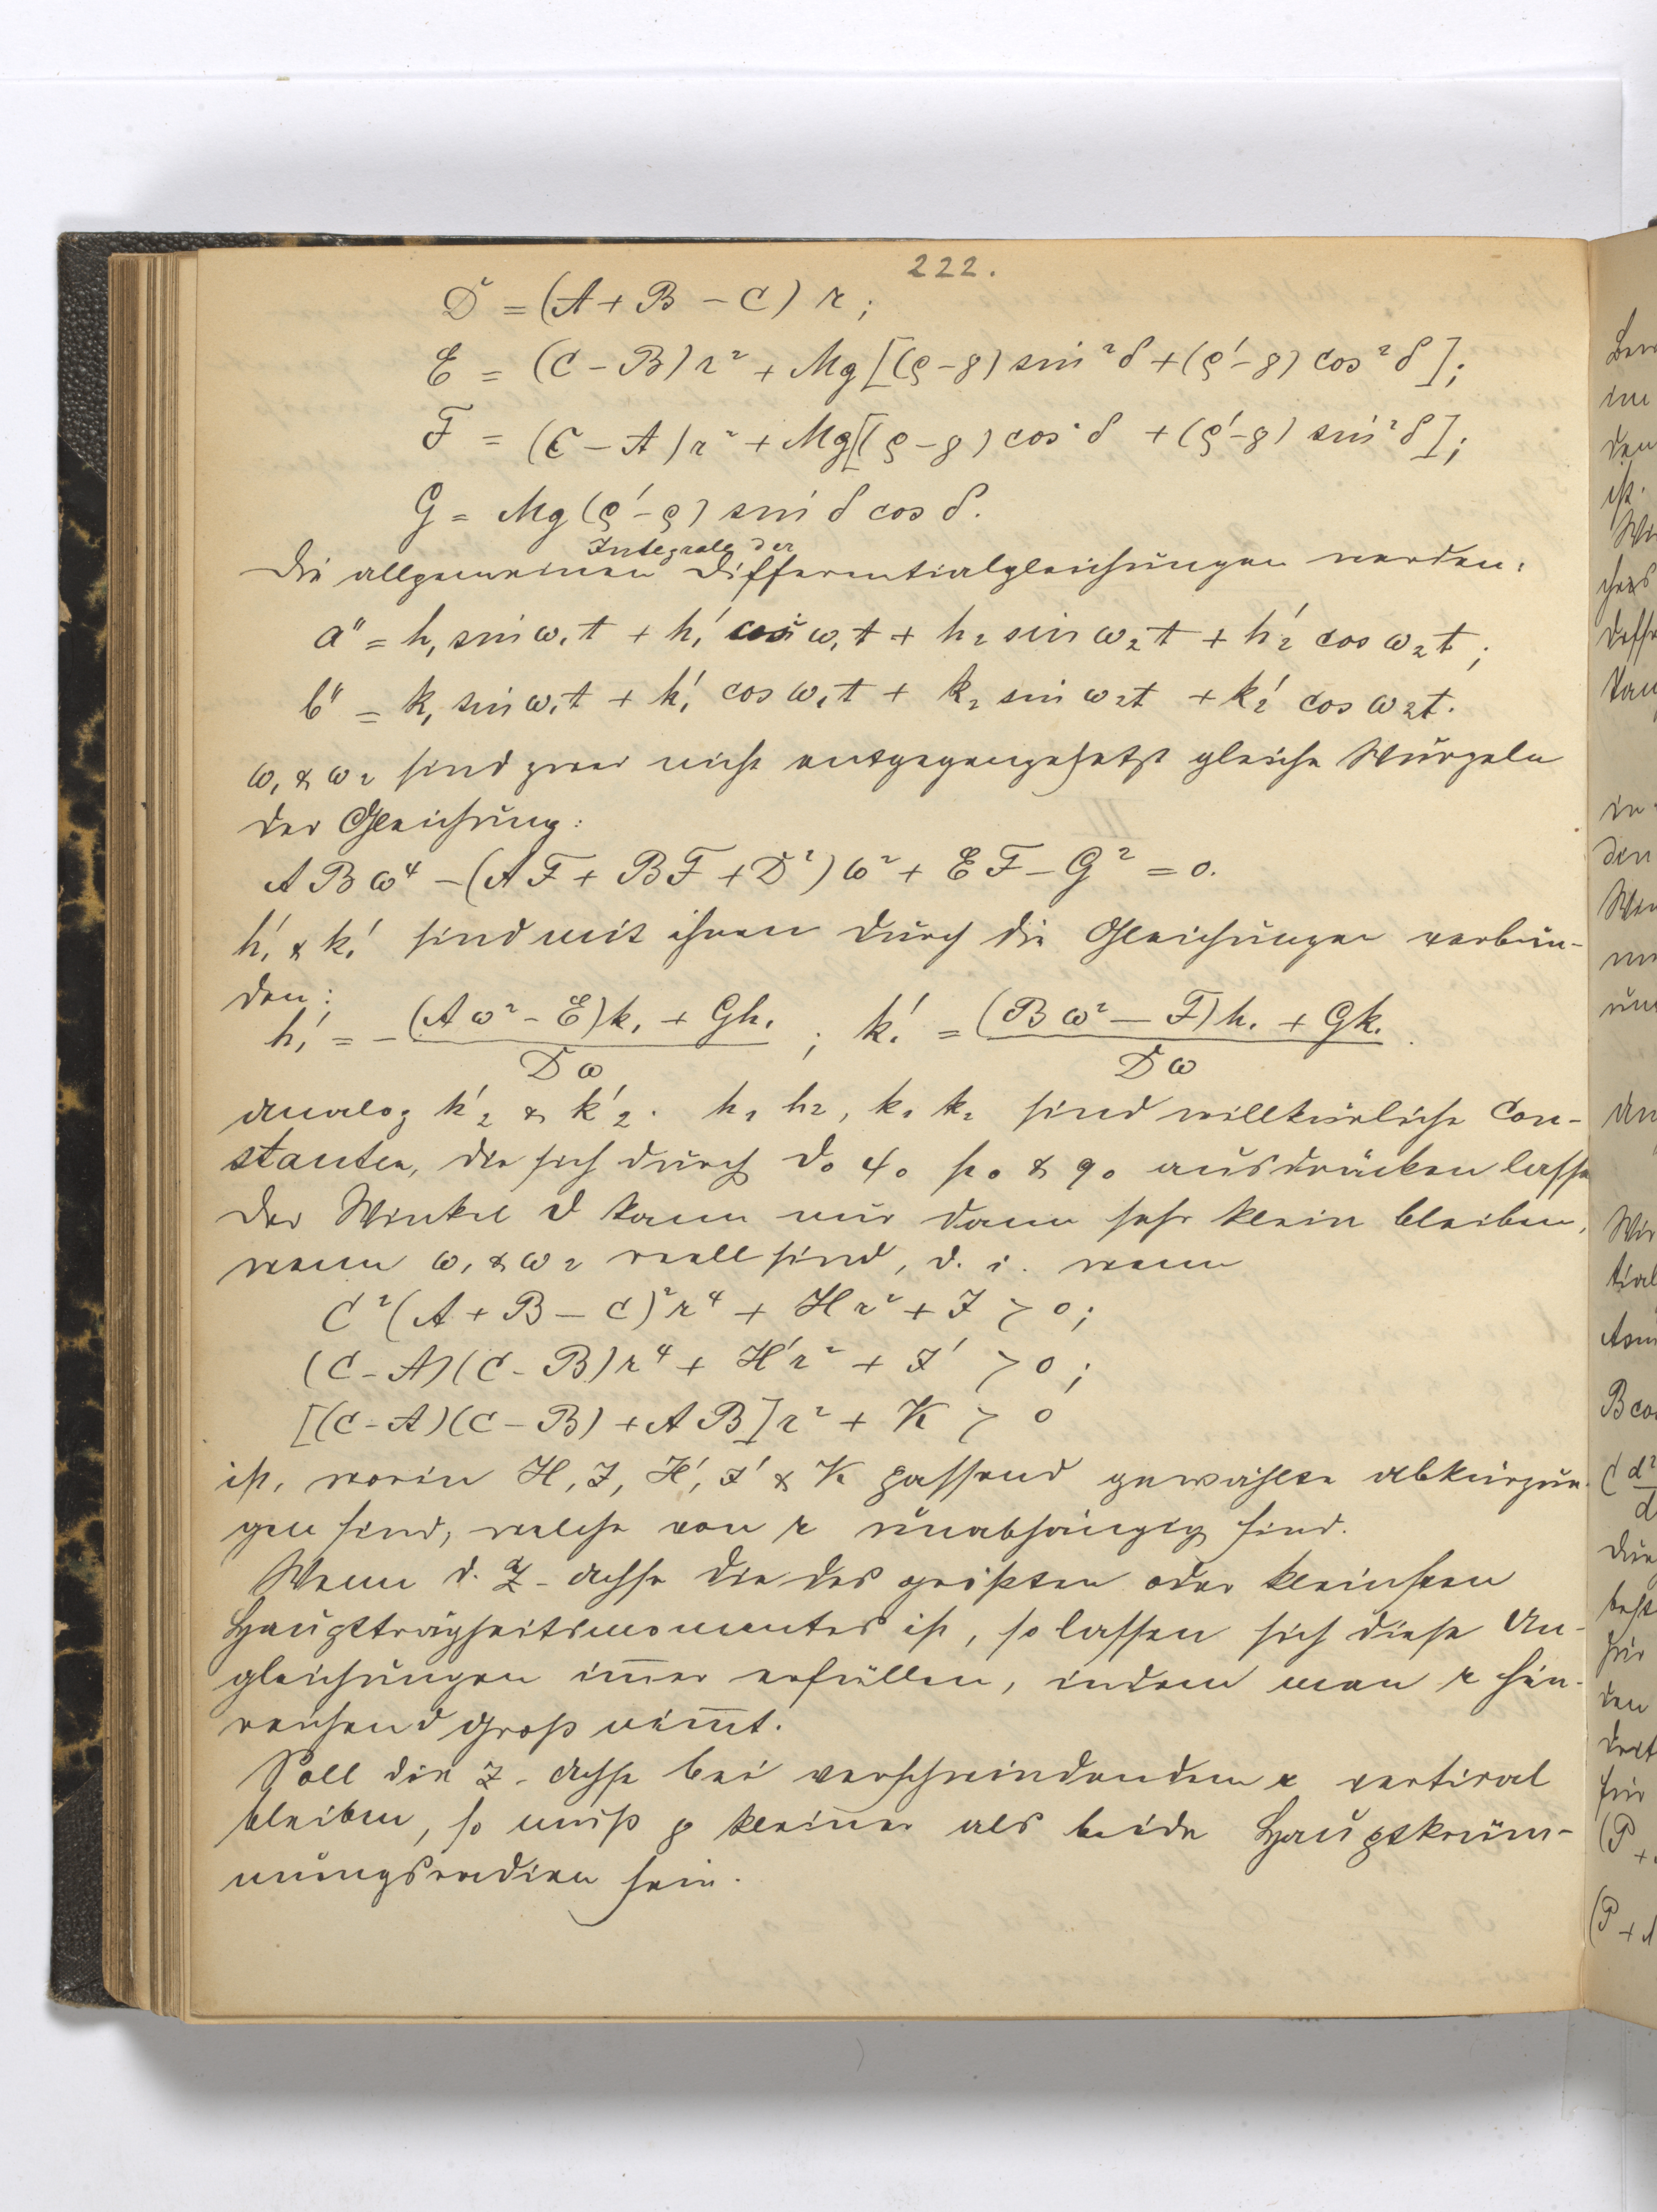 222.
D = (A + B − C) r;
E = (C − B) r² + Mg [(ρ − g) sin² δ + (ρ' − g) cos² δ];
F = (C − A) r² + Mg [(ρ − g) cos² δ + (ρ' − g) sin² δ];
G = Mg (ρ' − ρ) sin δ cos δ.
Integrale der
Die allgemeinen Differentialgleichungen werden:
a'' = h₁ sin ω₁t + h₁' cos ω₁t + h₂ sin ω₂t + h₂' cos ω₂t;
b'' = k₁ sin ω₁t + k₁' cos ω₁t + k₂ sin ω₂t + k₂' cos ω₂t.
ω₁ & ω₂ sind zwei nicht entgegengesetzt gleiche Wurzeln
der Gleichung:
ABω⁴ − (AF + BF + D²) ω² + EF − G² = 0.
h₁' & k₁' sind mit ihnen durch die Gleichungen verbun-
den:
h₁' = − (Aω² − E)k₁ + Gh₁ / Dω ; k₁' = (Bω² − F)h₁ + Gk₁ / Dω .
analog h₂' & k₂'. h₁ h₂, k₁ k₂ sind willkürliche Con-
stanten, die sich durch ϑ₀ φ₀ p₀ & q₀ ausdrücken lasse
Der Winkel ϑ kann nur dann sehr klein bleiben,
wenn ω₁ & ω₂ reell sind, d. i. wenn
C² (A + B − C)² r⁴ + H r² + J > 0;
(C − A)(C − B) r⁴ + H' r² + J' > 0;
[(C − A)(C − B) + AB] r² + K > 0
ist, worin H, J, H', J' & K passend gewählte Abkürzun-
gen sind, welche von r unabhängig sind.
Wenn d. Z-Achse die des größten oder kleinsten
Hauptträgheitsmomentes ist, so lassen sich diese Un-
gleichungen im̄er erfüllen, indem man r hin-
reichend groß nim̄t.
Soll die Z-Achse bei verschwindendem r vertical
bleiben, so muß g kleiner als beide Hauptkrüm-
mungsradien sein.